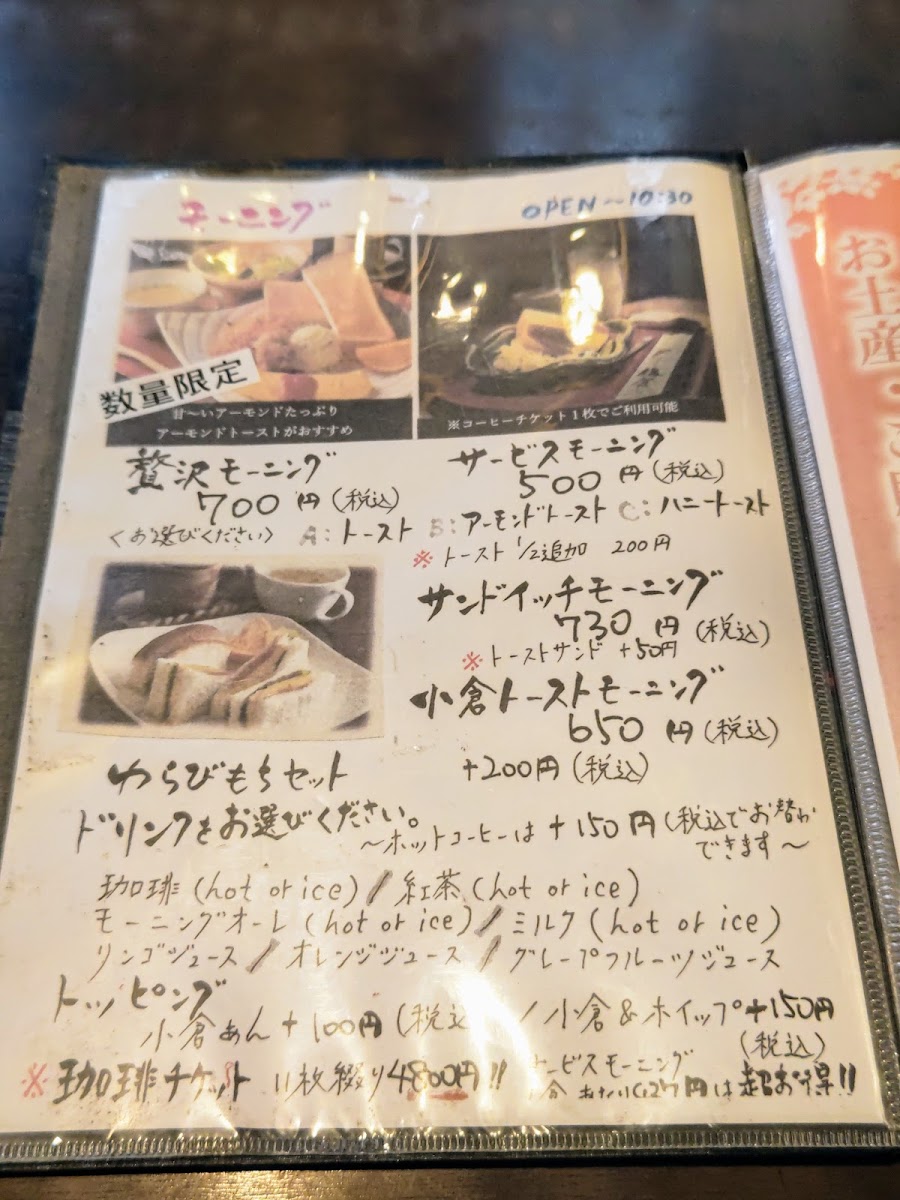 モーニング
OPEN〜10:30
数量限定
甘〜いアーモンドたっぷり
アーモンドトーストがおすすめ
※コーヒーチケット1枚でご利用可能
贅沢モーニング
700円(税込)
サービスモーニング
500円(税込)
〈お選びください〉 A:トースト B:アーモンドトースト C:ハニートースト
※トースト1/2追加 200円
サンドイッチモーニング
730円(税込)
※トーストサンド+50円
小倉トーストモーニング
650円(税込)
わらびもちセット +200円(税込)
ドリンクをお選びください。
〜ホットコーヒーは+150円(税込でお替わり
できます〜
珈琲(hot or ice)/紅茶(hot or ice)
モーニングオーレ(hot or ice)/ミルク(hot or ice)
リンゴジュース/オレンジジュース/グレープフルーツジュース
トッピング
小倉あん+100円(税込)/小倉&ホイップ+150円
(税込)
※珈琲チケット 11枚綴り4800円!!
サービスモーニング
円は超お得!!
お土産・